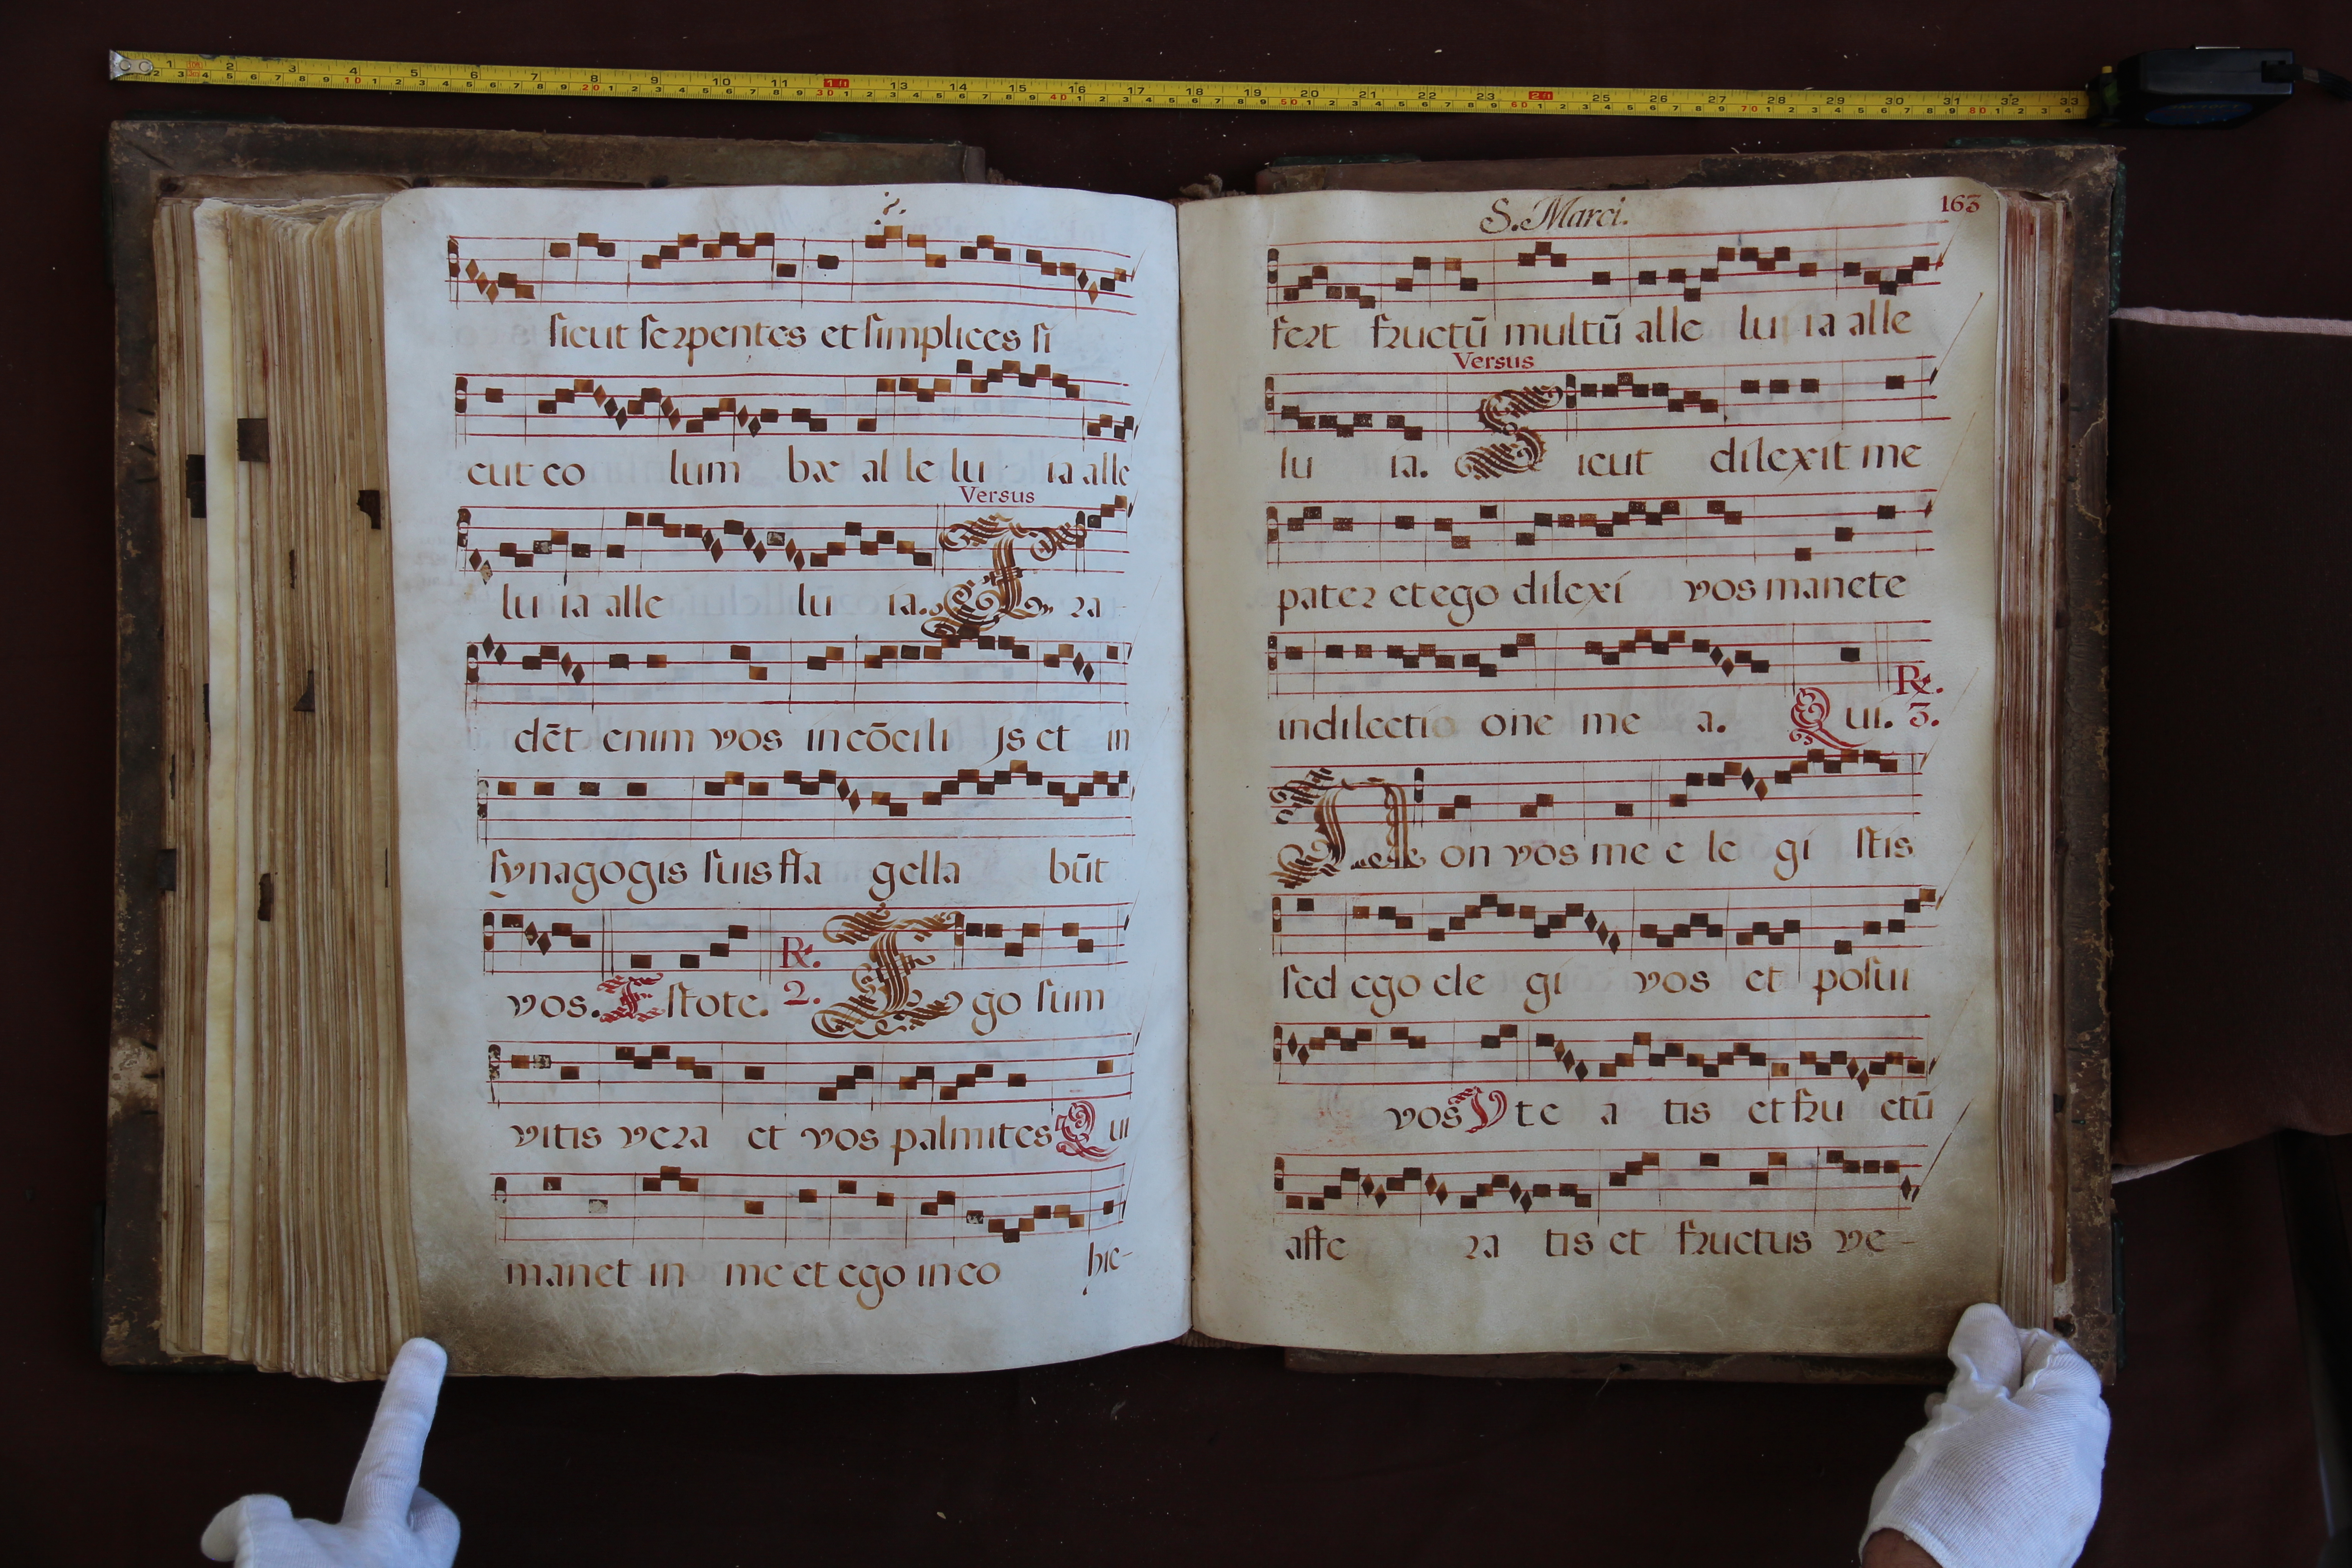 sicut serpentes et simplices si
cut co lum bæ al le lu ia alle
Versus
lu ia alle lu ia. Tra
dēt enim vos in cōcili js et in
synagogis suis fla gella būt
vos. Estote. ℞. 2. Ego sum
vitis vera et vos palmites Qui
manet in me et ego in eo hic-
S. Marci. 163
fert fructū multū alle lu ia alle
Versus
lu ia. Sicut dilexit me
pater et ego dilexi vos manete
in dilectio one me a. Qui. ℞. 3.
Non vos me e le gi stis
sed ego ele gi vos et posui
vos Vt e a tis et fru ctū
affe ra tis et fructus ve-